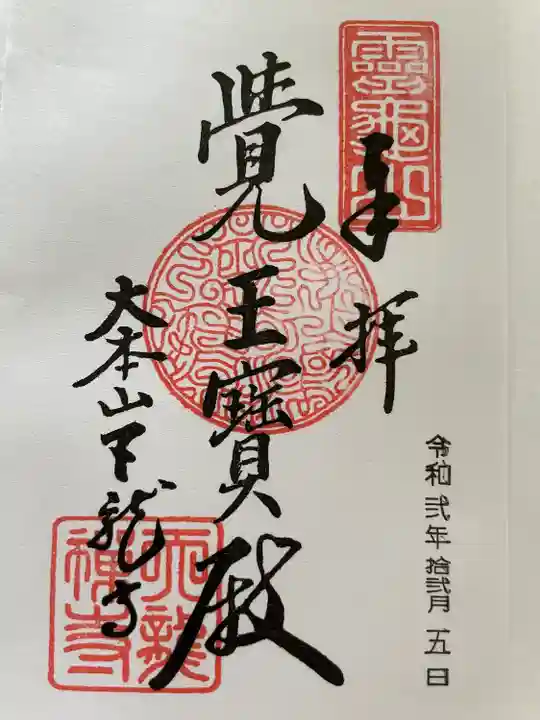 靈龜山
奉拜
覺王寶殿
大本山天龍寺
天龍禪寺
令和弐年拾弐月五日